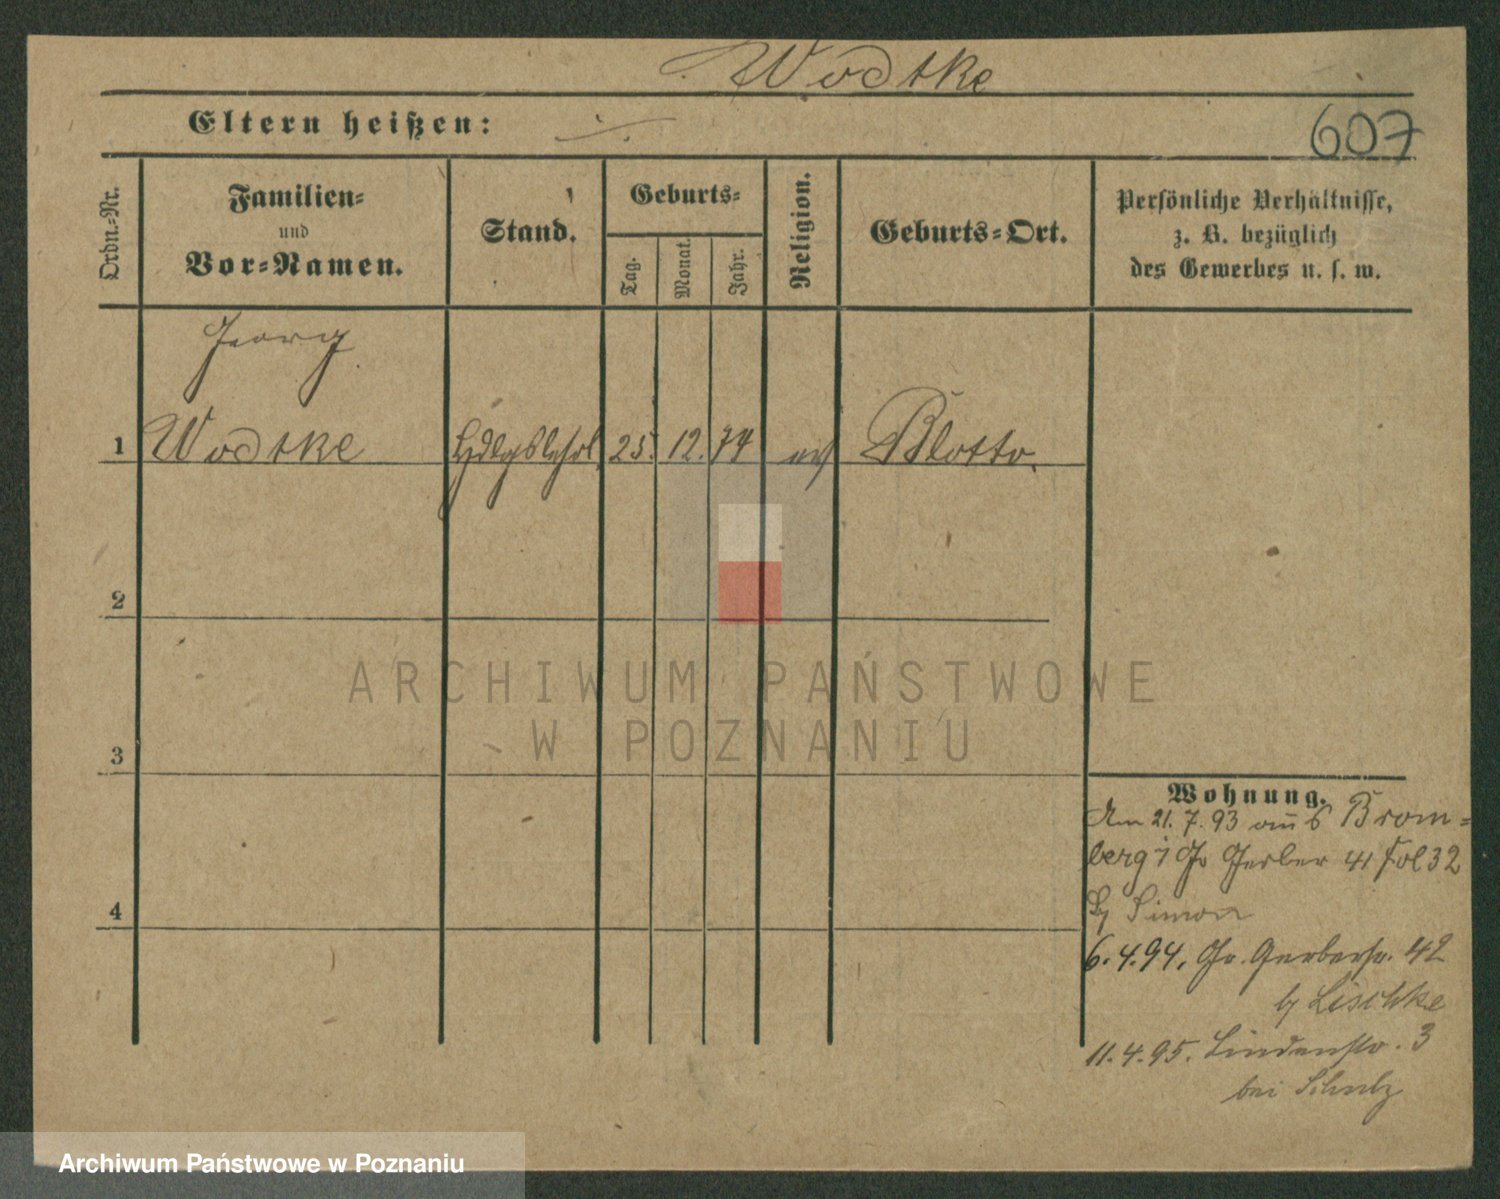 Wodtke
Eltern heißen: ./.
607
Ordn.-Nr.
Familien-
und
Vor-Namen.
Stand.
Geburts-
Tag.
Monat.
Jahr.
Religion.
Geburts-Ort.
Persönliche Verhältnisse,
z. B. bezüglich
des Gewerbes u. s. w.
Georg
1 Wodtke Hdlgslehrl. 25. 12. 74 ev Blotto.
2
3
4
ARCHIWUM PAŃSTWOWE
W POZNANIU
Wohnung.
Am 21. 7. 93 aus Brom=
berg Gr Gerber 41 Fol 32
by Simon
6. 4. 94. Gr. Gerberstr. 42
by Lischke
11. 4. 95. Lindenstr. 3
bei Schulz
Archiwum Państwowe w Poznaniu